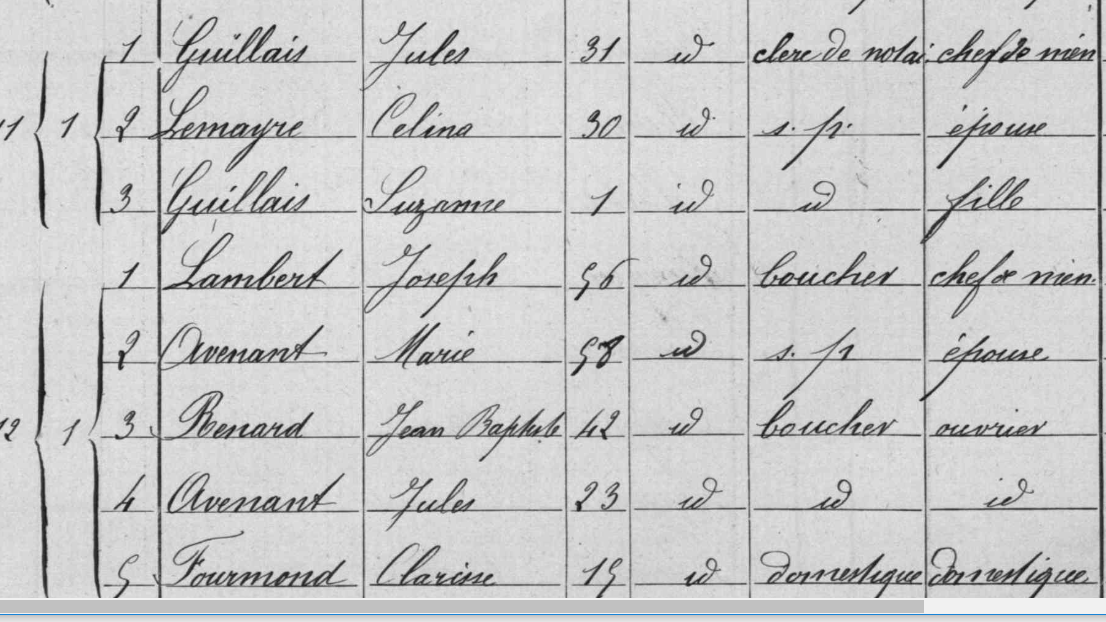 1 Guillais Jules 31 id clerc de notai. chef de mén
11 1 2 Lemayre Celina 30 id s. p. épouse
3 Guillais Suzanne 1 id id fille
1 Lambert Joseph 56 id boucher chef de mén.
2 Avenant Marie 58 id s. p épouse
12 1 3 Renard Jean Baptiste 42 id boucher ouvrier
4 Avenant Jules 23 id id id
5 Fourmond Clarisse 15 id domestique domestique.